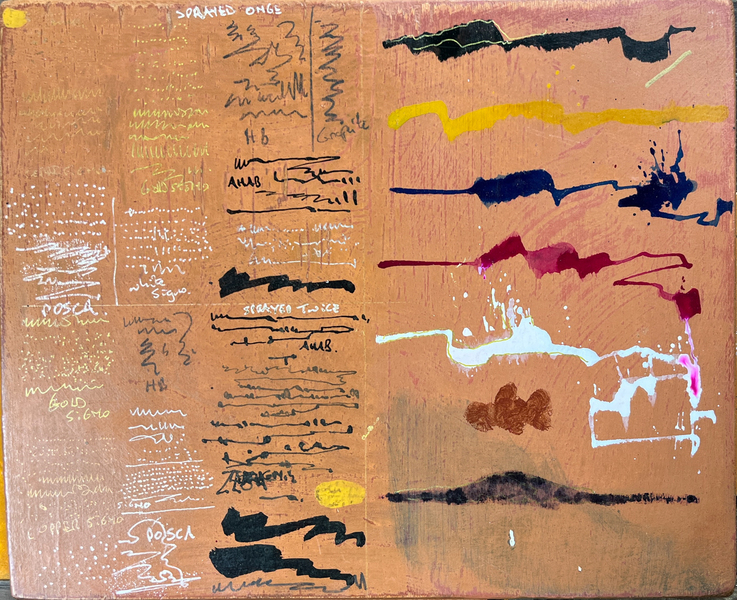 SPRAYED ONCE
HB
Graphite
GOLD SIGNO
AHAB
White
Signo
POSCA
SPRAYED TWICE
AHAB.
HB
GOLD
SIGNO
SIGNO
COPPER SIGNO
POSCA